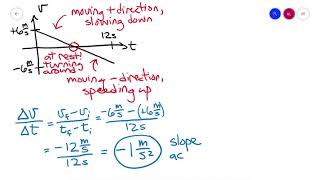 v
moving + direction,
slowing down
+6 m/s
12s
t
at rest!
turning
around
-6 m/s
moving - direction,
speeding up
Δv/Δt = (v_f - v_i)/(t_f - t_i) = (-6 m/s - (+6 m/s))/12s
= (-12 m/s)/12s = -1 m/s² slope
ac